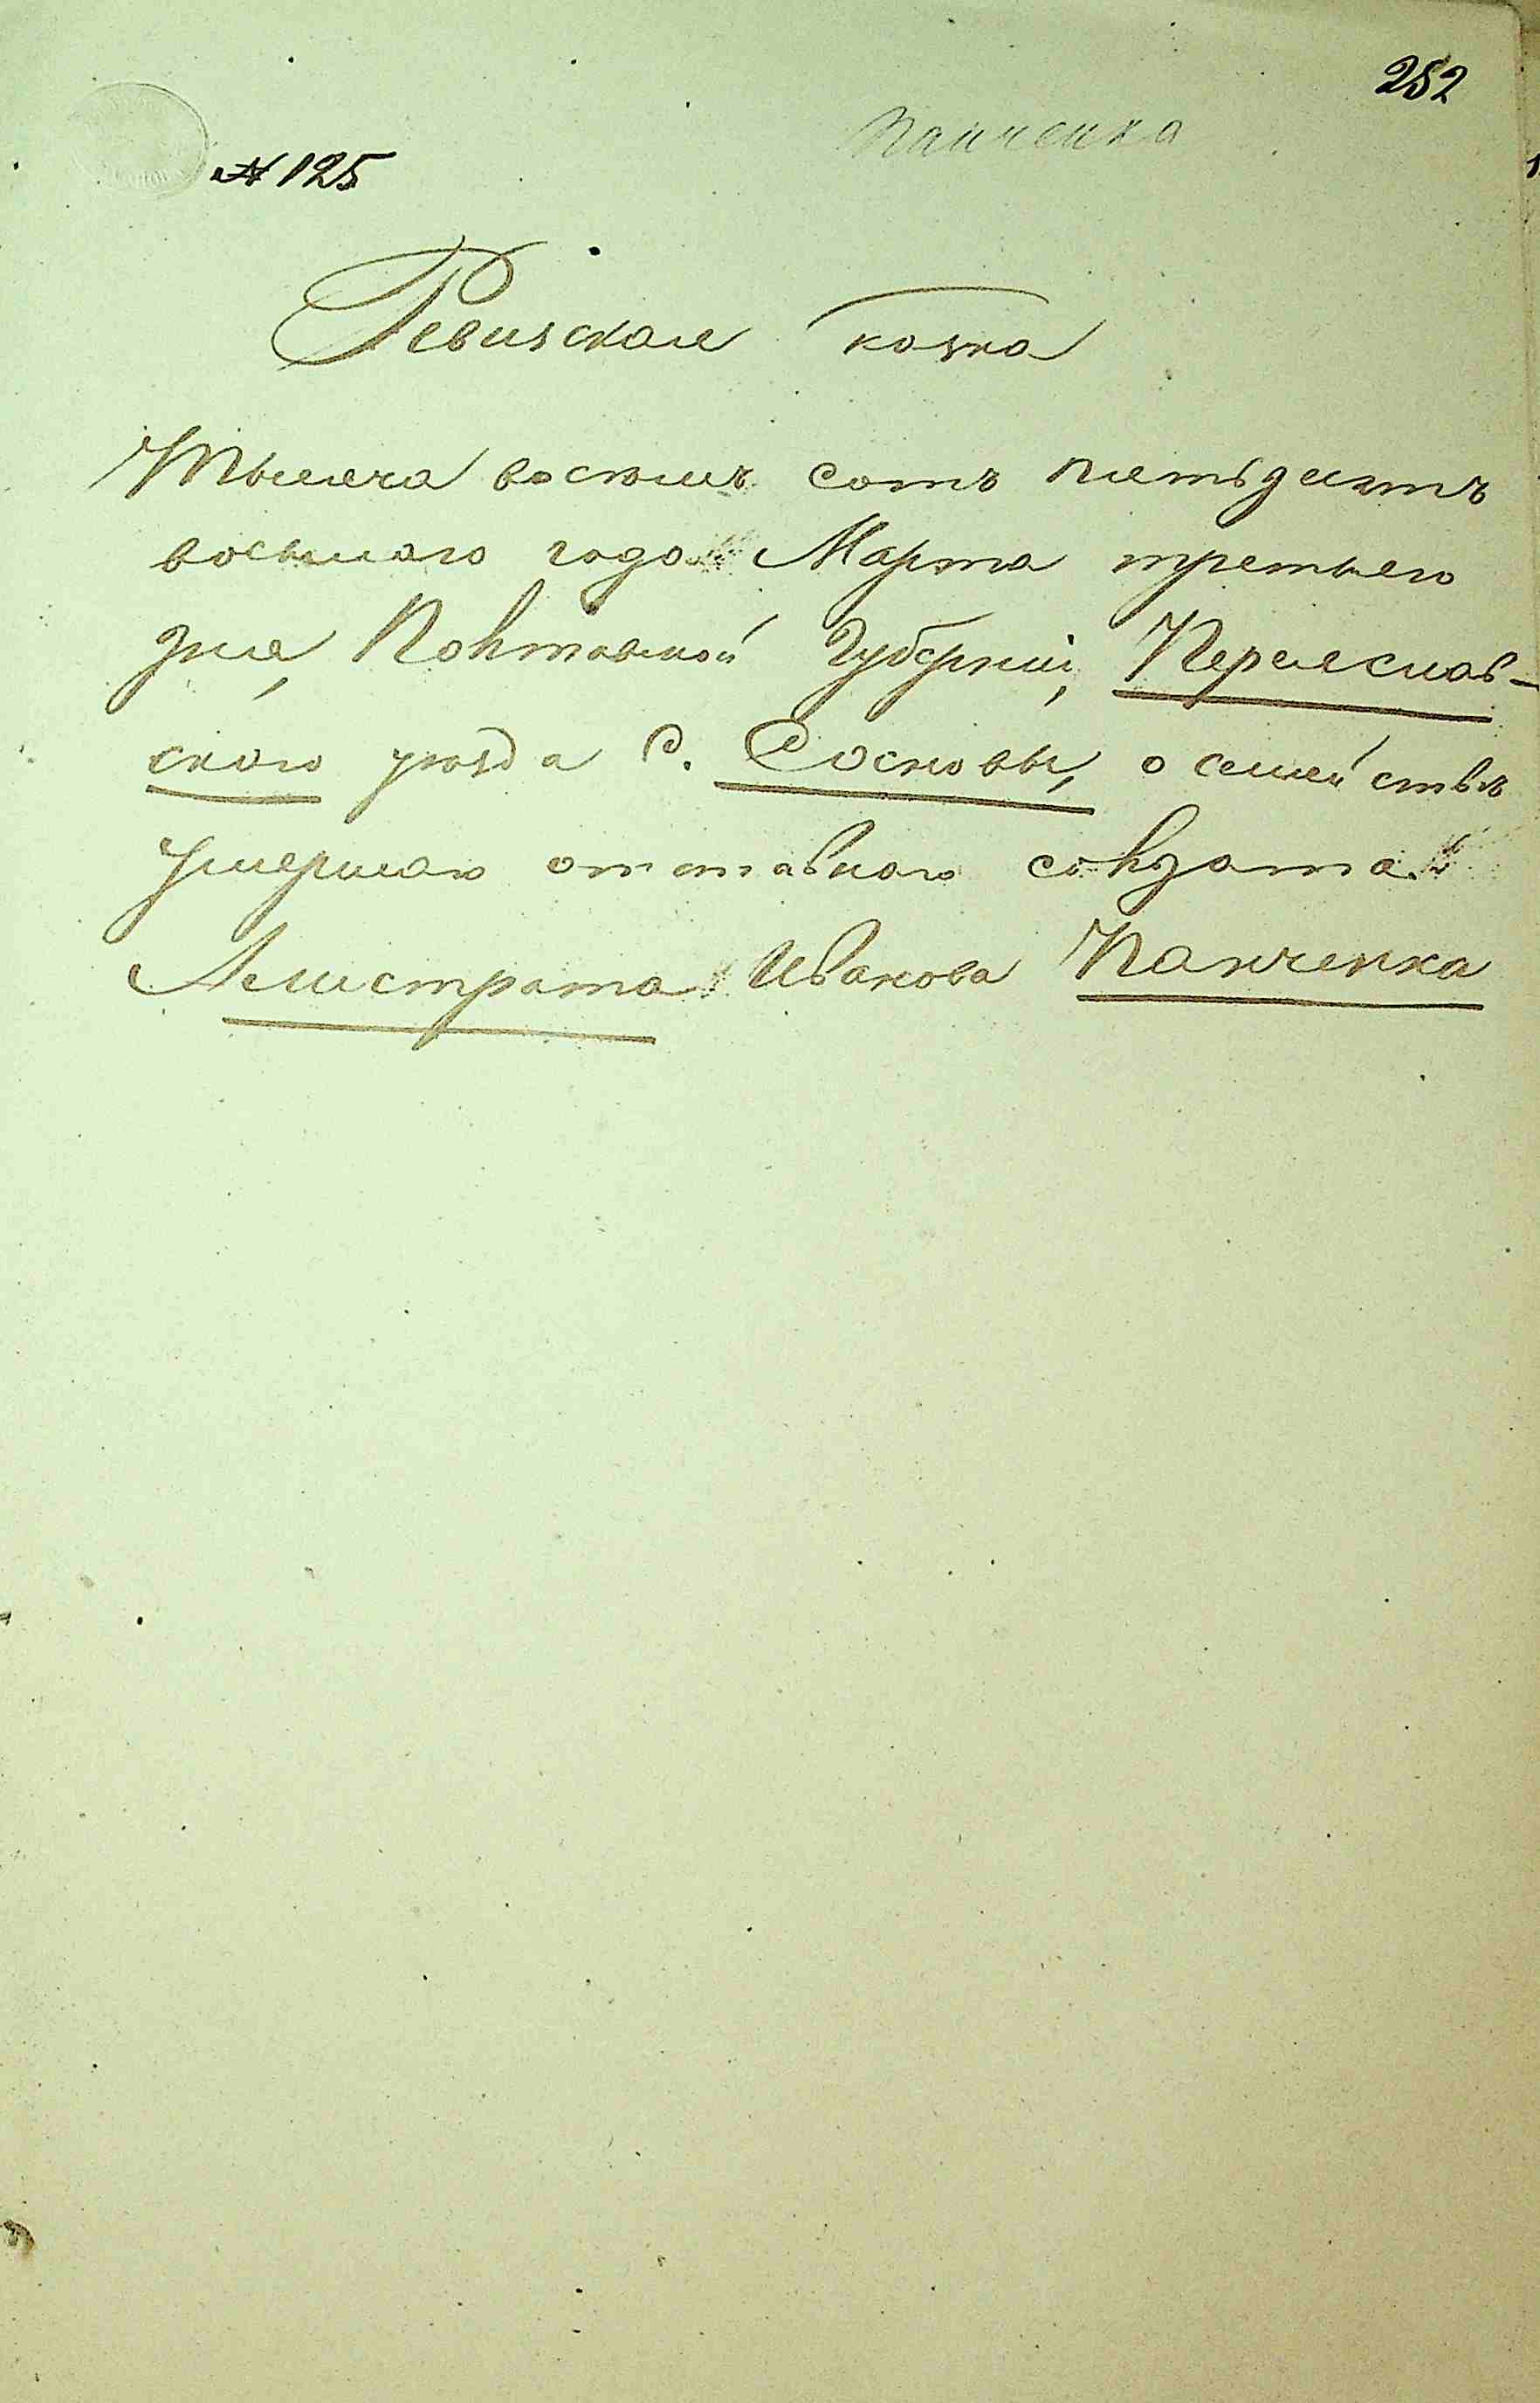 252
Панченка
№ 125
Ревизская сказка
Тысяча восемь сотъ пятьдесятъ
восьмаго года Марта третьего
дня, Полтавской Губерніи, Переяслав-
скаго уезда С. Сосновы, о семействѣ
умершаго отставнаго солдата
Иванова Панченка